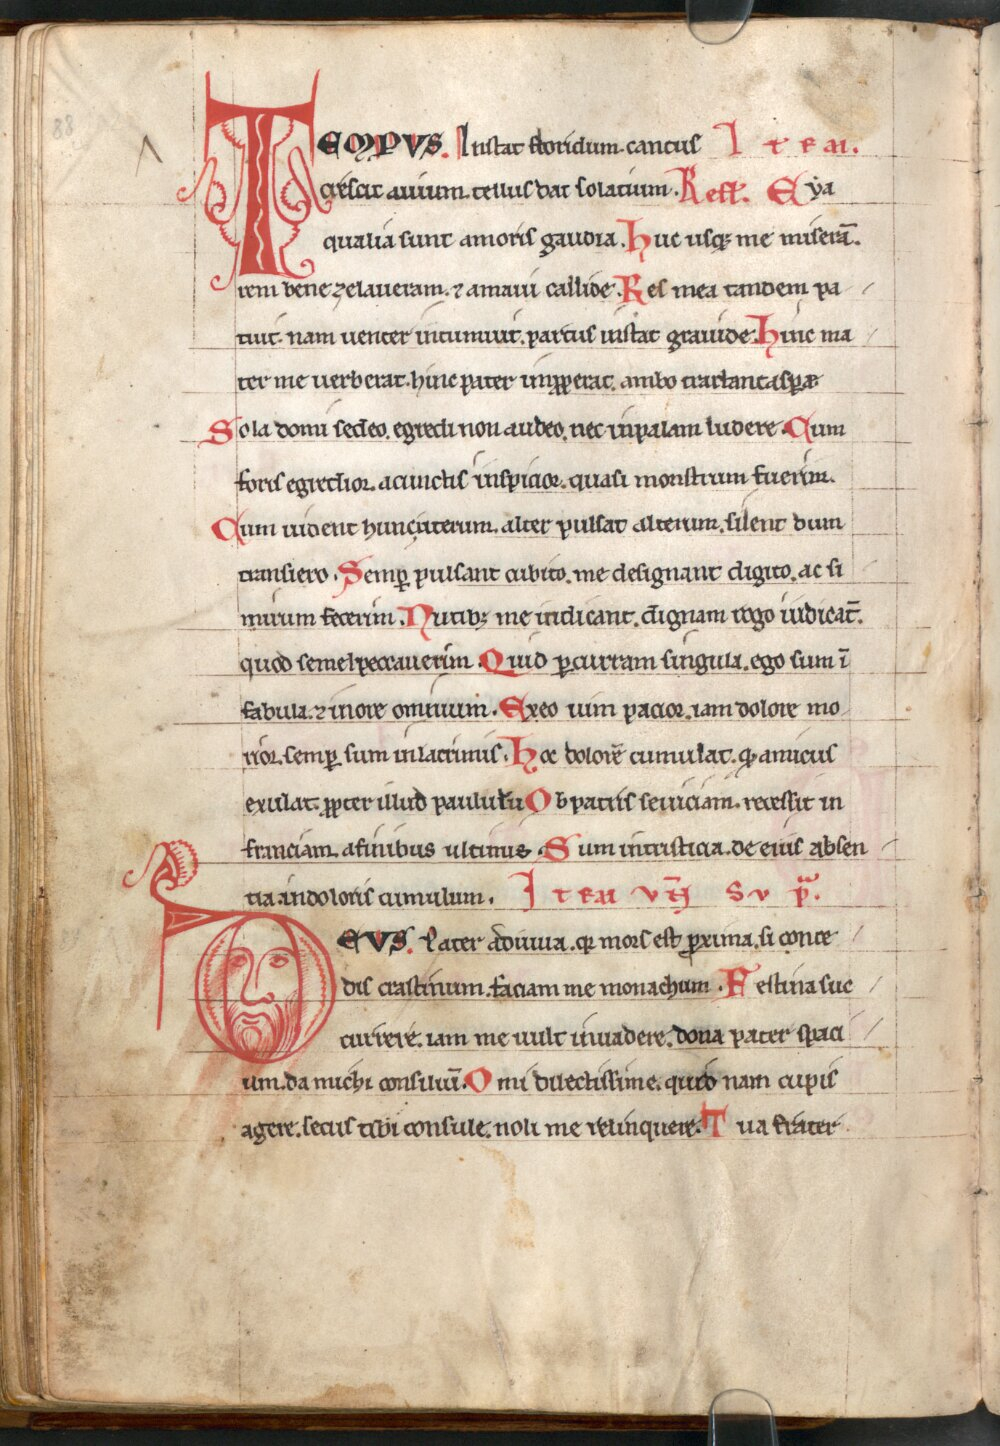 88
TEMPVS. Instat floridum. cantus Item.
crescit auium. tellus dat solacium. Reff. Eya
qualia sunt amoris gaudia. Huc usq; me miserā.
rem bene zelaueram. ⁊ amaui callide. Res mea tandem pa
tuit. nam uenter intumuit. partus instat grauide. Hinc ma
ter me uerberat. hinc pater inpperat. ambo tractant aspere
Sola domi sedeo. egredi non audeo. nec inpalam ludere. Cum
foris egredior. acunctis inspicior. quasi monstrum fuerim.
Cum uident hunc uterum. alter pulsat alterum. silent dum
transiero. Semp pulsant cubito. me designant digito. ac si
mirum fecerim. Nutib; me indicant. dignam rogo iudicāt.
quod semel peccauerim. Quid pcurram singula. ego sum ī
fabula. ⁊ inore omnium. Exeo uim pacior. iam dolore mo
rior. semp sum inlacrimis. Hoc dolorē cumulat. qđ amicus
exulat. ppter illud paululū. Ob patris seuiciam. recessit in
franciam. afinibus ultimis. Sum intristicia. de eius absen
tia indoloris cumulum. Item vn̄ sup.
DEVS. Pater adiuua. qr mors est pxima. si conce
dis crastinum. faciam me monachum. Festina suc
currere. iam me uult inuadere. dona pater spaci
um. da michi consiliū. O mi dilectissime. quid nam cupis
agere. secus tibi consule. noli me relinquere. Tua frater